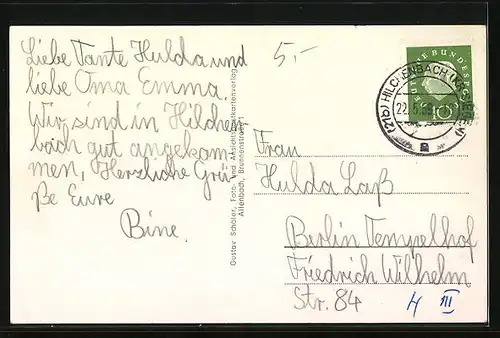 Liebe Tante Hulda und
liebe Oma Emma.
Wir sind in Hilchen
bach gut angekom-
men, Herzliche Grü-
ße Eure
Bine.
5,-
Gustav Schöler, Foto- und Ansichtspostkartenverlag
Allenbach, Brunnenstraße 1
DEUTSCHE BUNDESPOST
10
(21b) HILCHENBACH
22.5.59
a
Frau
Hulda Laß
Berlin Tempelhof
Friedrich Wilhelm
Str. 84
4 III